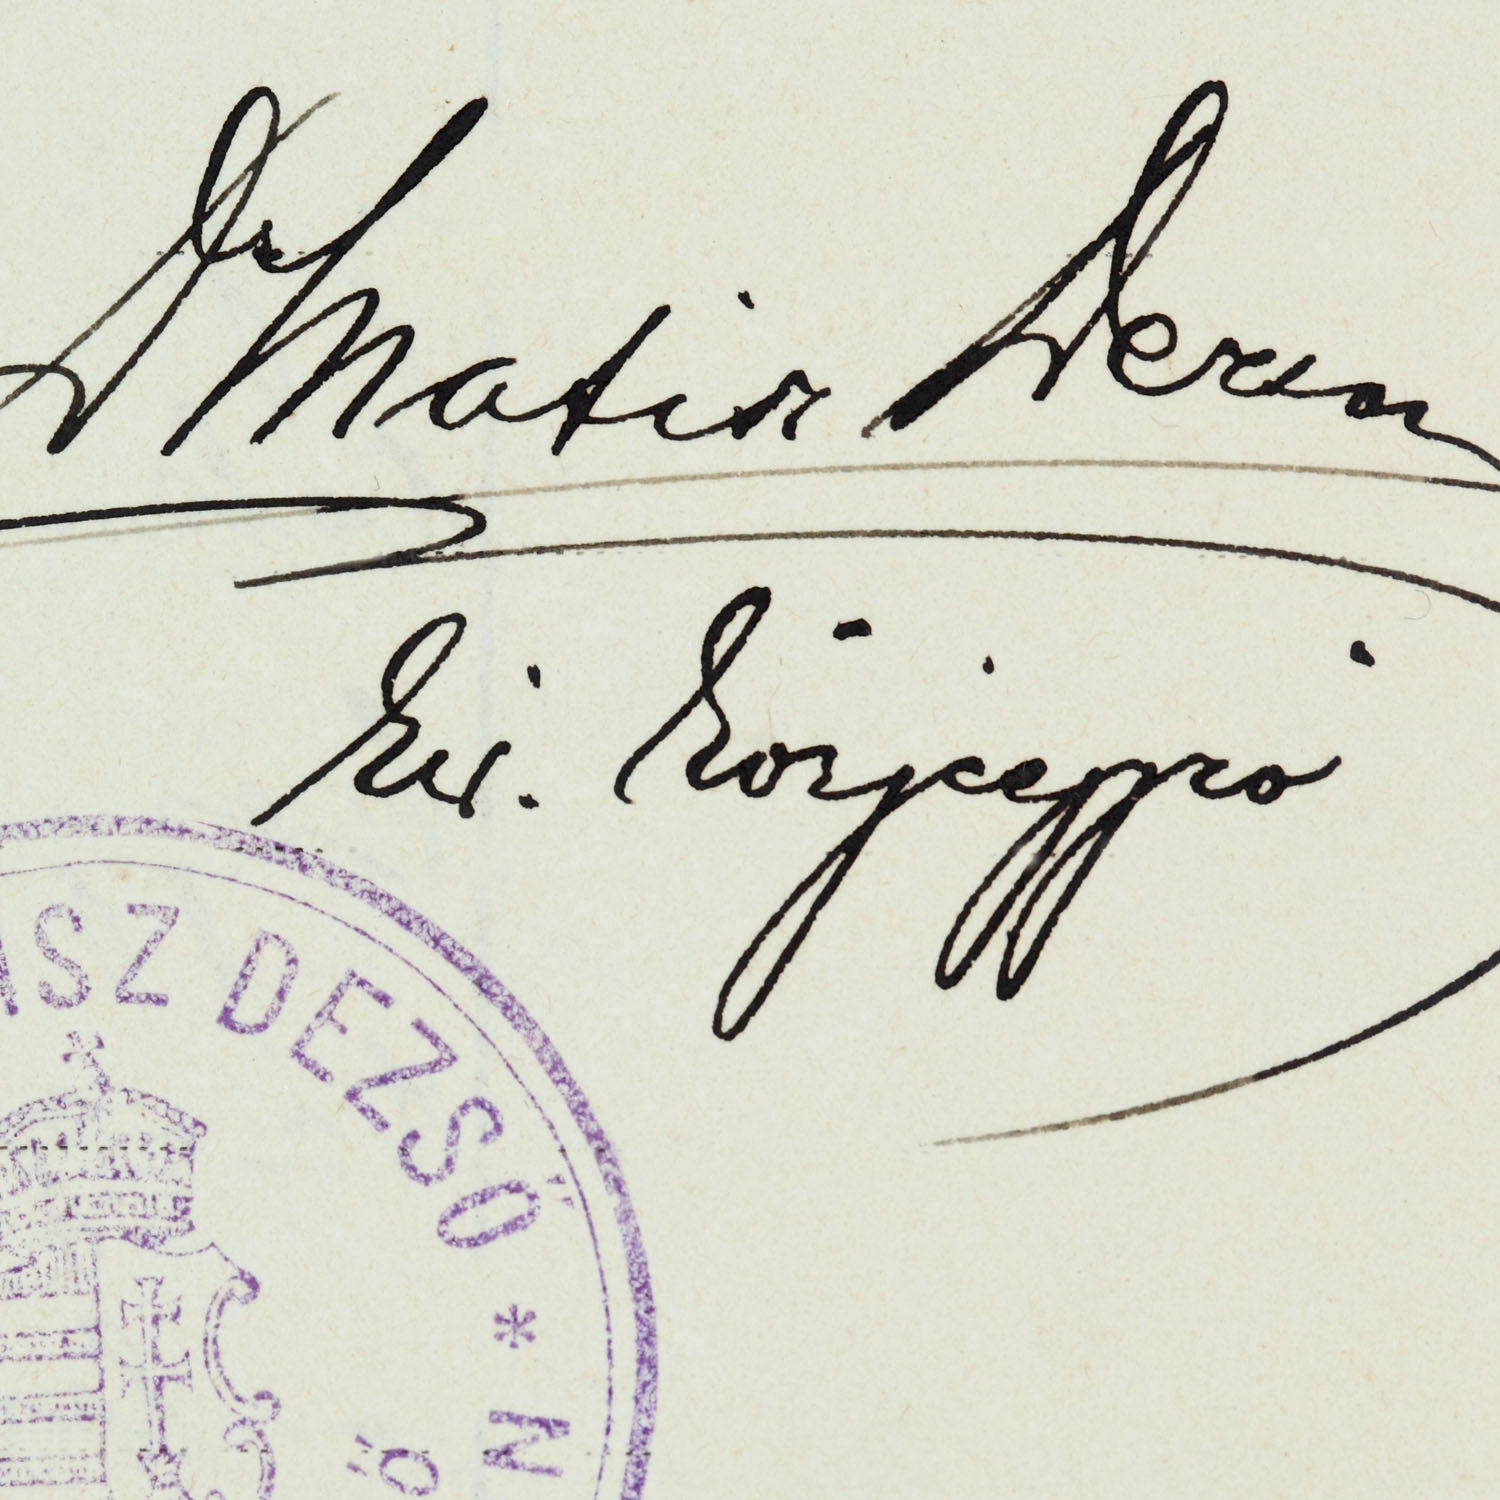 Dr Matisz Dezső
kir. közjegyző
ISZ DEZSŐ * M